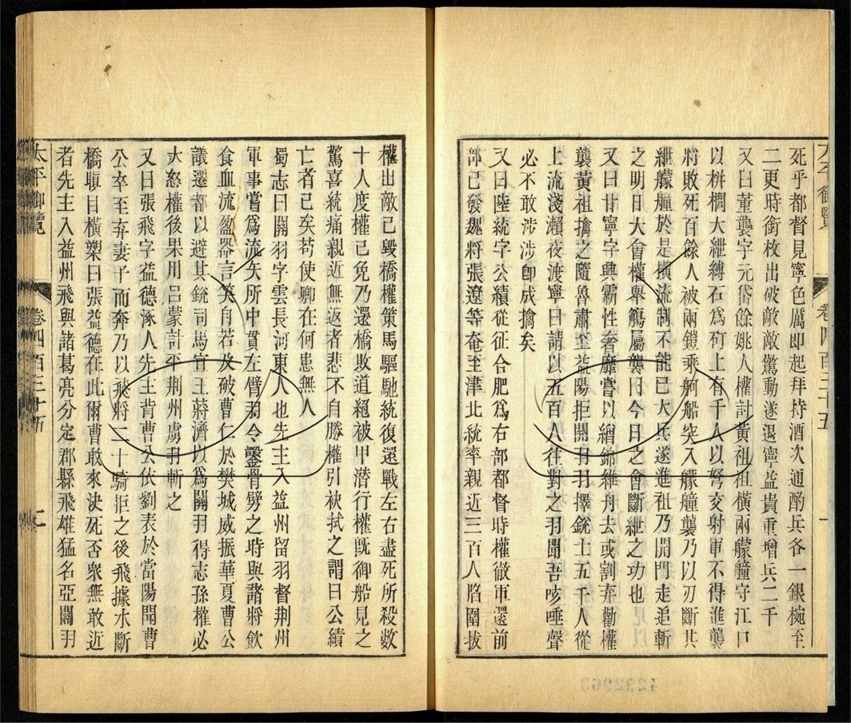 死乎都督見寧色厲即起拜持酒次通酌兵各一銀椀至
二更時銜枚出破敵敵驚動遂退寧益貴重增兵二千
又曰董襲字元代餘姚人權討黃祖祖橫兩艨艟守江口
以栟櫚大紲縛石為矴上有千人以弩交射軍不得進襲
將敗死百餘人被兩鎧乘舸船突入艨艟襲乃以刃斷其
紲艨艟於是橫流制不能已大兵遂進祖乃開門走追斬
之明日大會權舉觴屬襲曰今日之會斷紲之功也
又曰甘寧字興霸性奢靡嘗以繒錦維舟去或割棄勸權
襲黃祖擒之隨魯肅至益陽拒關羽羽擇銳士五千人從
上流淺瀨夜渡寧曰請以五百人往對之羽聞吾咳唾聲
必不敢涉涉即成擒矣
又曰陸統字公績從征合肥為右部都督時權徹軍還前
部已發魏將張遼等奄至津北統率親近三百人陷圍拔
權出敵已毀橋權策馬驅馳統復還戰左右盡死所殺數
十人度權已免乃還橋敗道絕被甲潛行權既御船見之
驚喜統痛親近無返者悲不自勝權引袂拭之謂曰公績
亡者已矣苟使卿在何患無人
蜀志曰關羽字雲長河東人也先主入益州留羽督荊州
軍事嘗為流矢所中貫左臂羽令鑿骨劈之時與諸將飲
食血流盈器言笑自若攻破曹仁於樊城威振華夏曹公
議還都以避其銳司馬宣王蔣濟以為關羽得志孫權必
大怒權後果用呂蒙計平荊州虜羽斬之
又曰張飛字益德涿人先主背曹公依劉表於當陽聞曹
公卒至弃妻子而奔乃以飛將二十騎拒之後飛據水斷
橋瞋目橫槊曰張益德在此爾曹敢來決死否眾無敢近
者先主入益州飛與諸葛亮分定郡縣飛雄猛名亞關羽
太平御覽
卷四百三十五
七
4232963